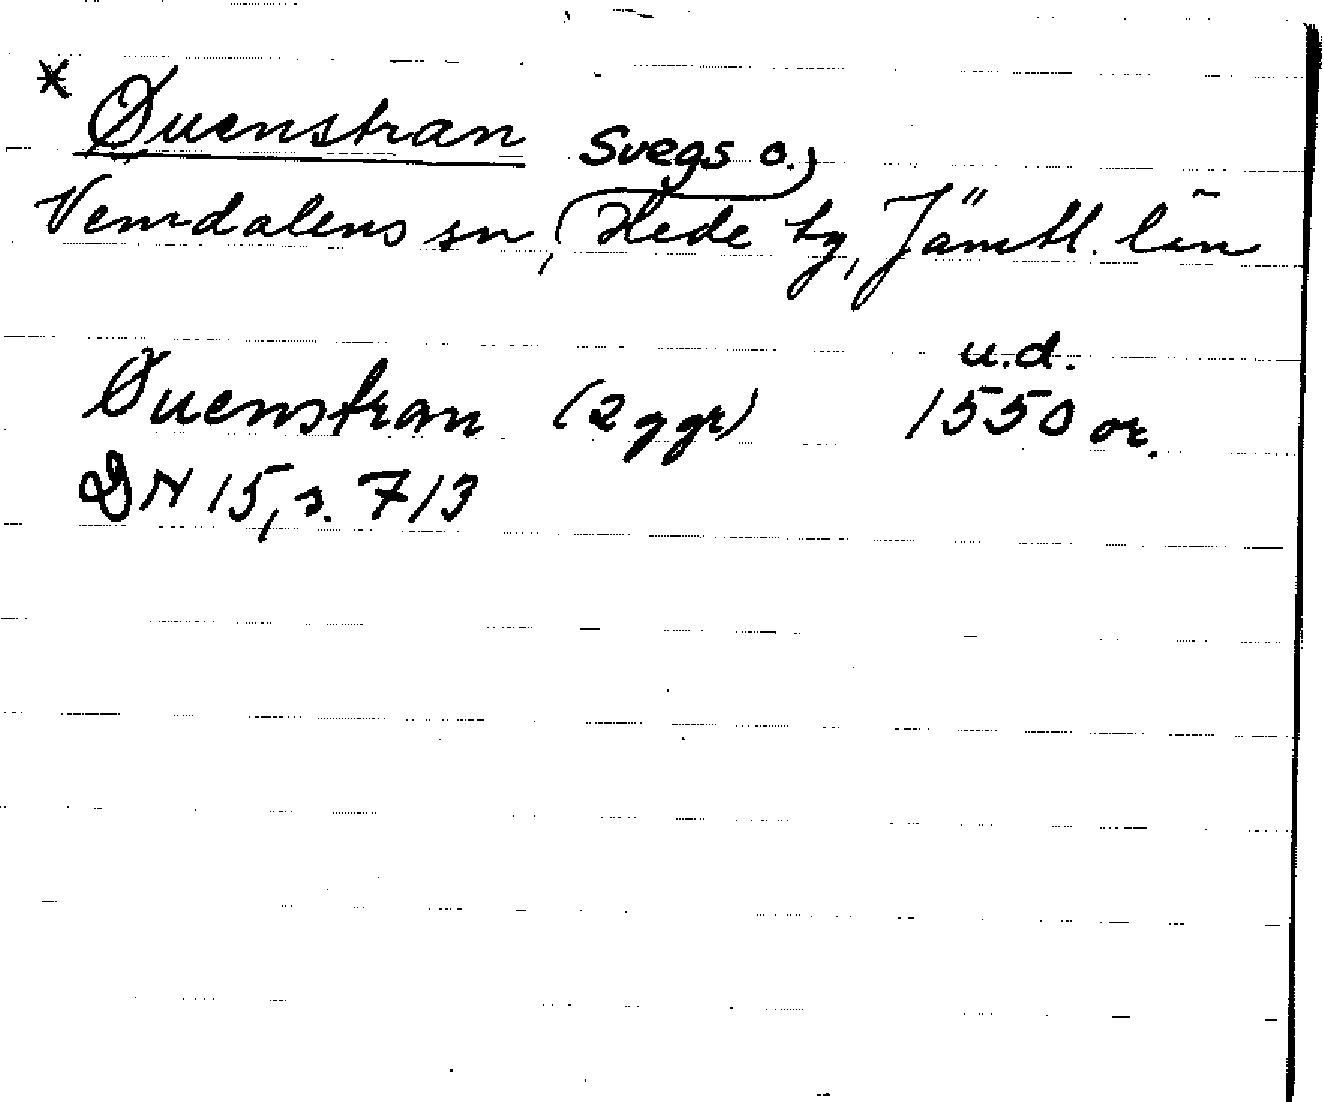 * Øuenstran Svegs o.
Vemdalens sn, (Hede tg, Jämtl. län
u.d.
Øuenstran (2 ggr) 1550 or.
DN 15, s. 713